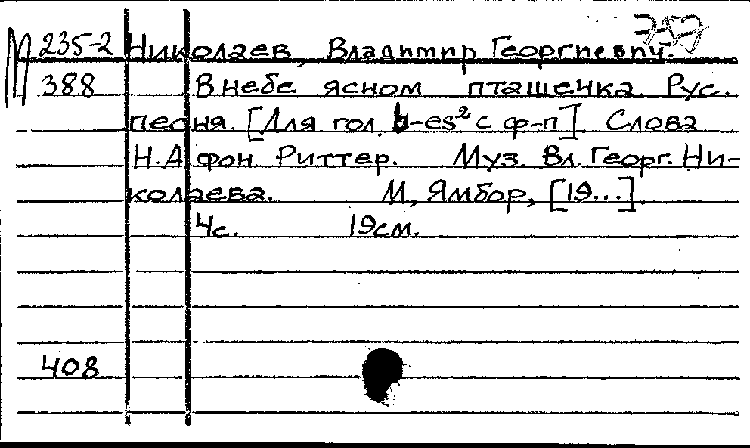 М 235-2 Николаев, Владимир Георгиевич.
388 В небе ясном пташечка. Рус.
песня. [Для гол. b-es² с ф-п]. Слова
Н.А. фон Риттер. Муз. Вл. Георг. Ни-
колаева. М, Ямбор, [19...].
4с. 19см.
408